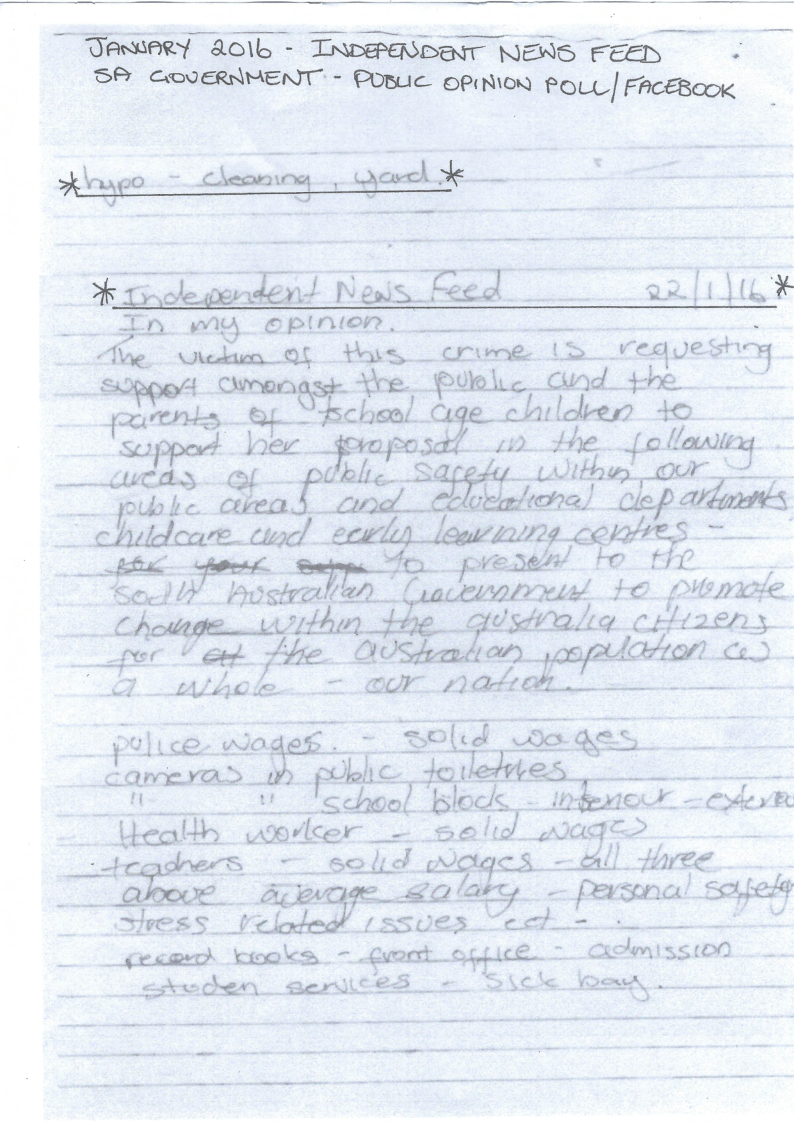 JANUARY 2016 - INDEPENDENT NEWS FEED
SA GOVERNMENT - PUBLIC OPINION POLL/FACEBOOK
*hypo - cleaning, yard.*
*Independent News Feed 22/1/16*
In my opinion.
The victim of this crime is requesting
support amongst the public and the
parents of school age children to
support her proposal in the following
areas of public safety within our
public areas and educational departments
childcare and early learning centres -
for your to present to the
Australian Government to promote
change within the australia citizens
for the australian population as
a whole - our nation.
police wages. - solid wages
cameras in public toiletries
" " school block - - 
Health worker - solid wages
teachers - solid wages - all three
above average salary - personal safety
stress related issues ect -
record books - front office - admission
studen services - sick bay.